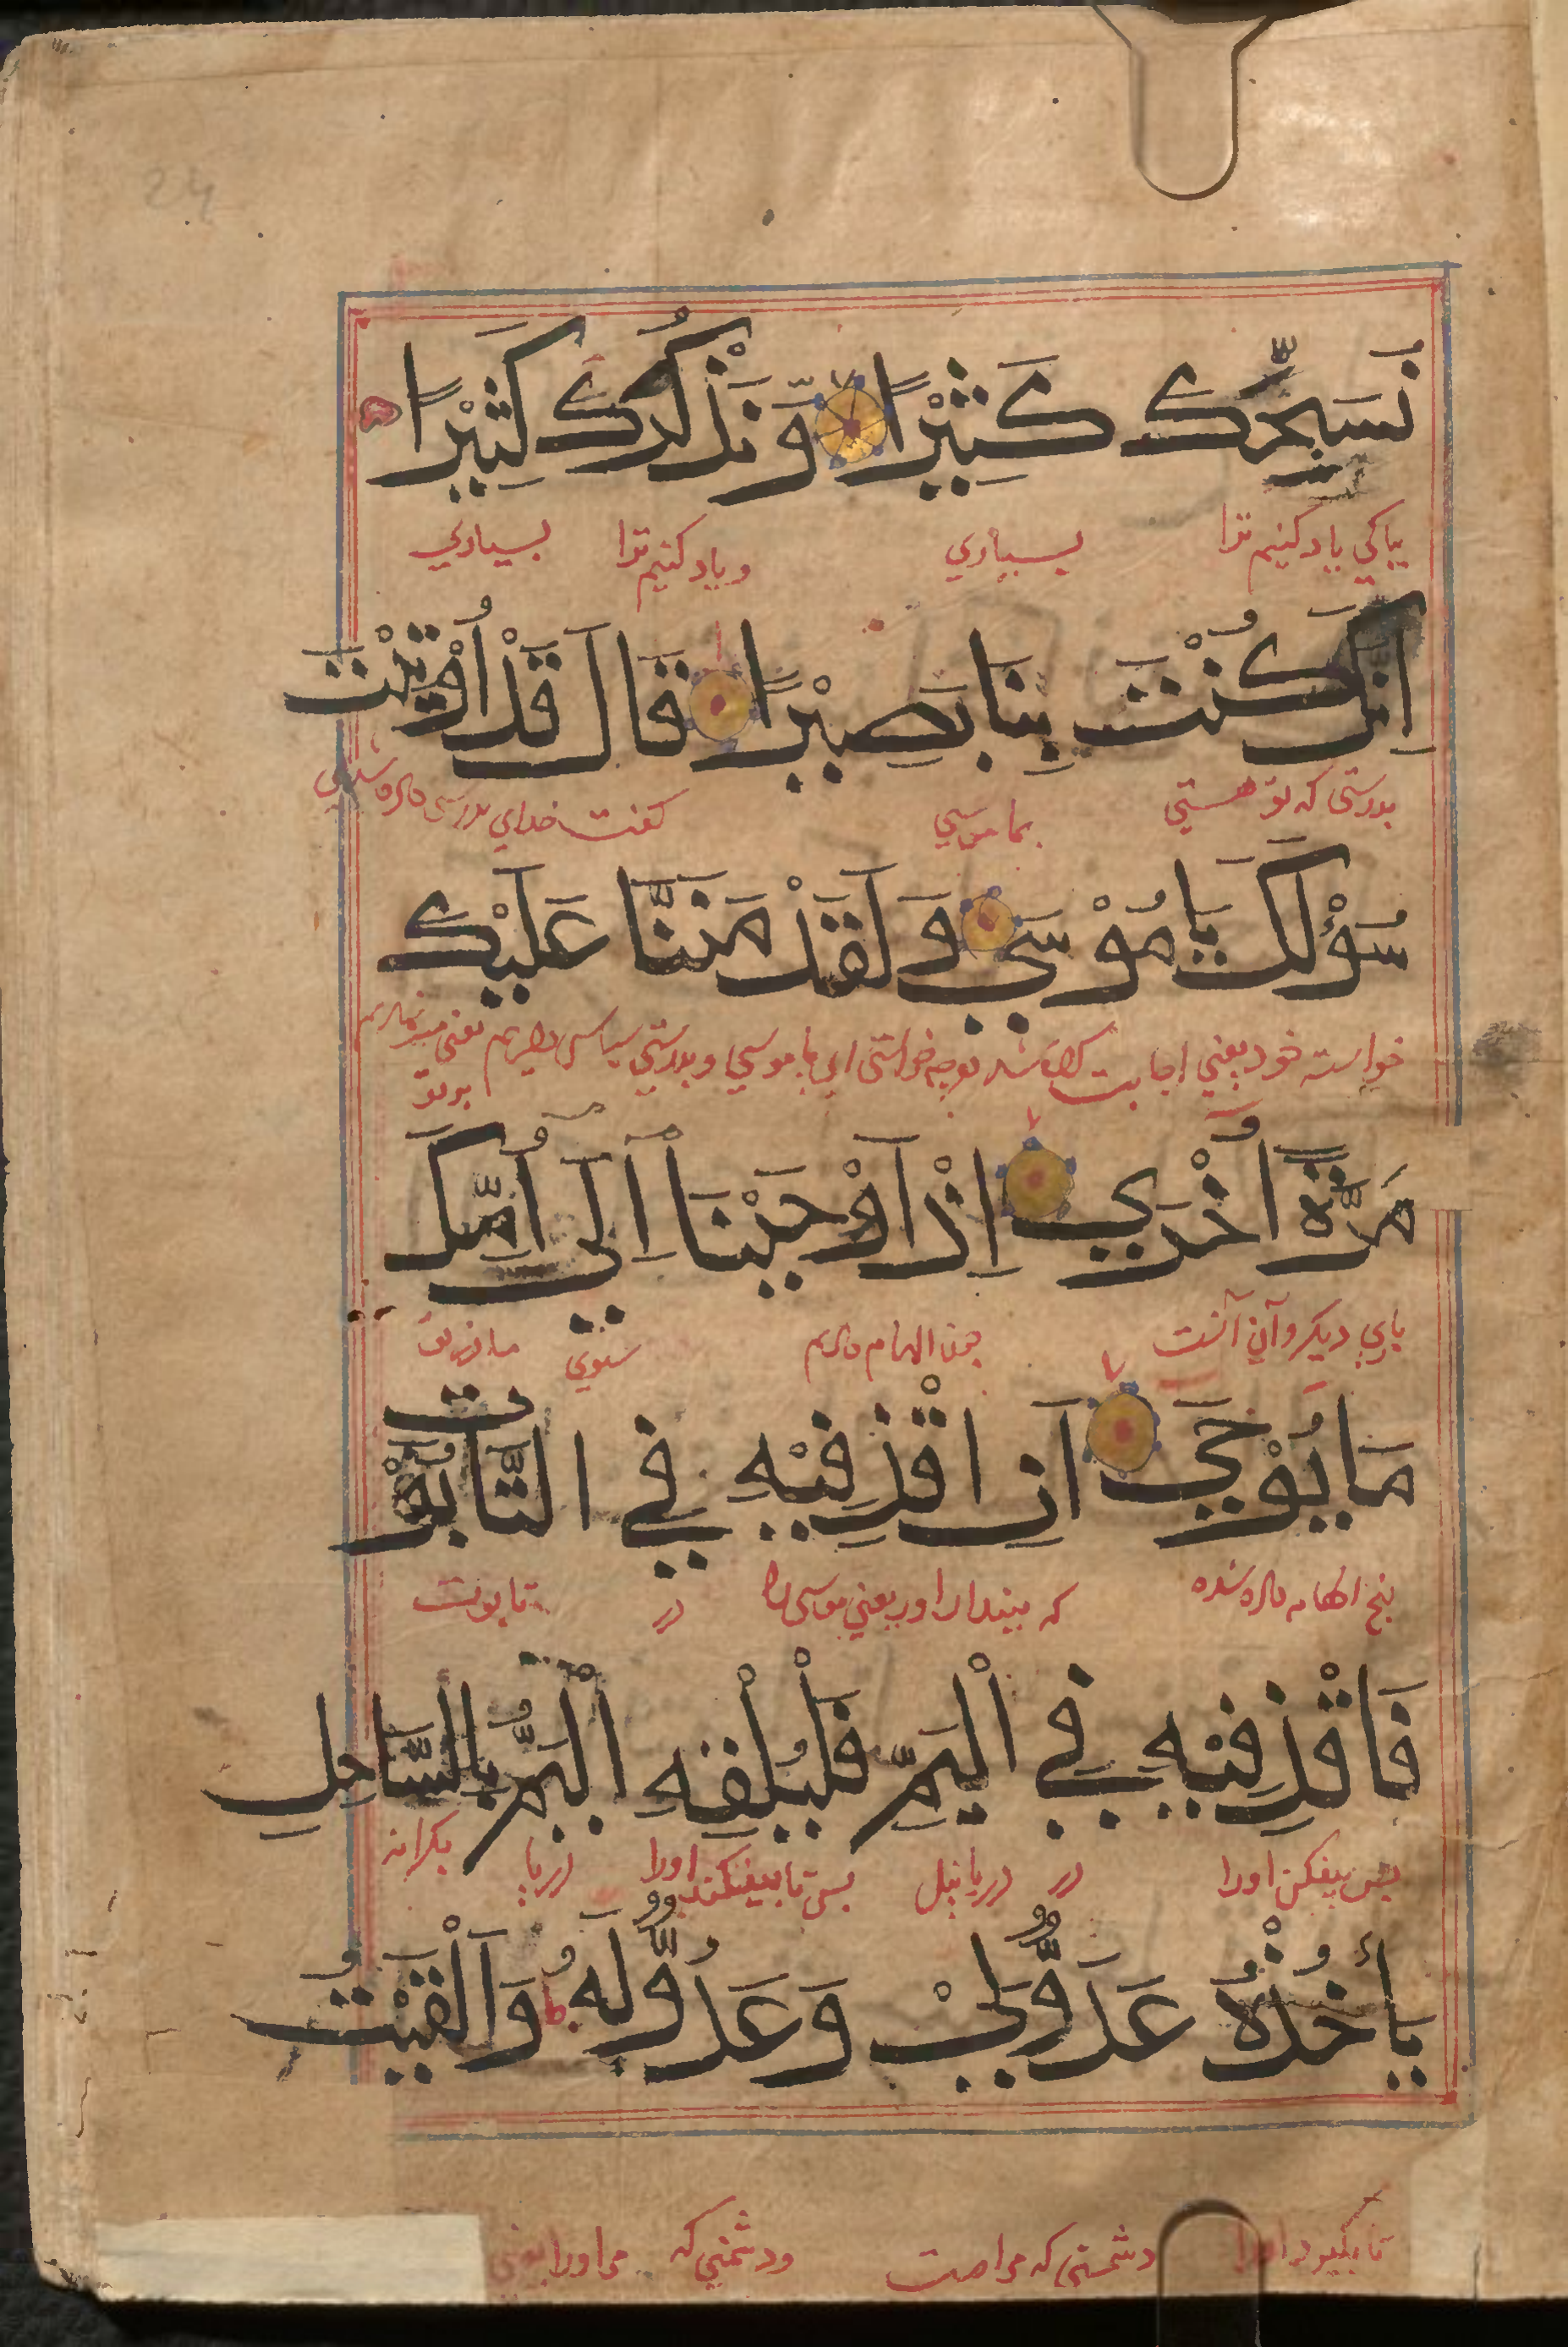 نُسَبِّحَكَ كَثِيْرًا وَّنَذْكُرَكَ كَثِيْرًا
بپاکي یاد کنیم ترا بسیاري و یاد کنیم ترا بسیاري
اِنَّكَ كُنْتَ بِنَا بَصِيْرًا قَالَ قَدْ اُوْتِيْتَ
بدرستی که تو هستي بما گفت خداي بدرستی
سُؤْلَكَ يَا مُوْسَي وَلَقَدْ مَنَنَّا عَلَيْكَ
خواسته خود یعني اجابت کرده شد خواستی اي یا موسي و بدرستي سپاس یعنی
بر تو
مَرَّةً اُخْرَي اِذْ اَوْحَيْنَا اِلَي اُمِّكَ
باري دیگر و آن آنست چون الهام دادیم سوي مادر تو
مَا يُوْحَي اَنِ اقْذِفِيْهِ فِي التَّابُوْتِ
الهام داده شده که او یعني موسی را در تابوت
فَاقْذِفِيْهِ فِي الْيَمِّ فَلْيُلْقِهِ الْيَمُّ بِالسَّاحِلِ
پس بیفکن اورا در دریا نیل پس تا بیفکند اورا دریا بکرانه
يَأْخُذْهُ عَدُوٌّ لِّيْ وَعَدُوٌّ لَهُ وَاَلْقَيْتُ
تا بگیرد اورا دشمنی که مراست و دشمني که مر اورا یعني